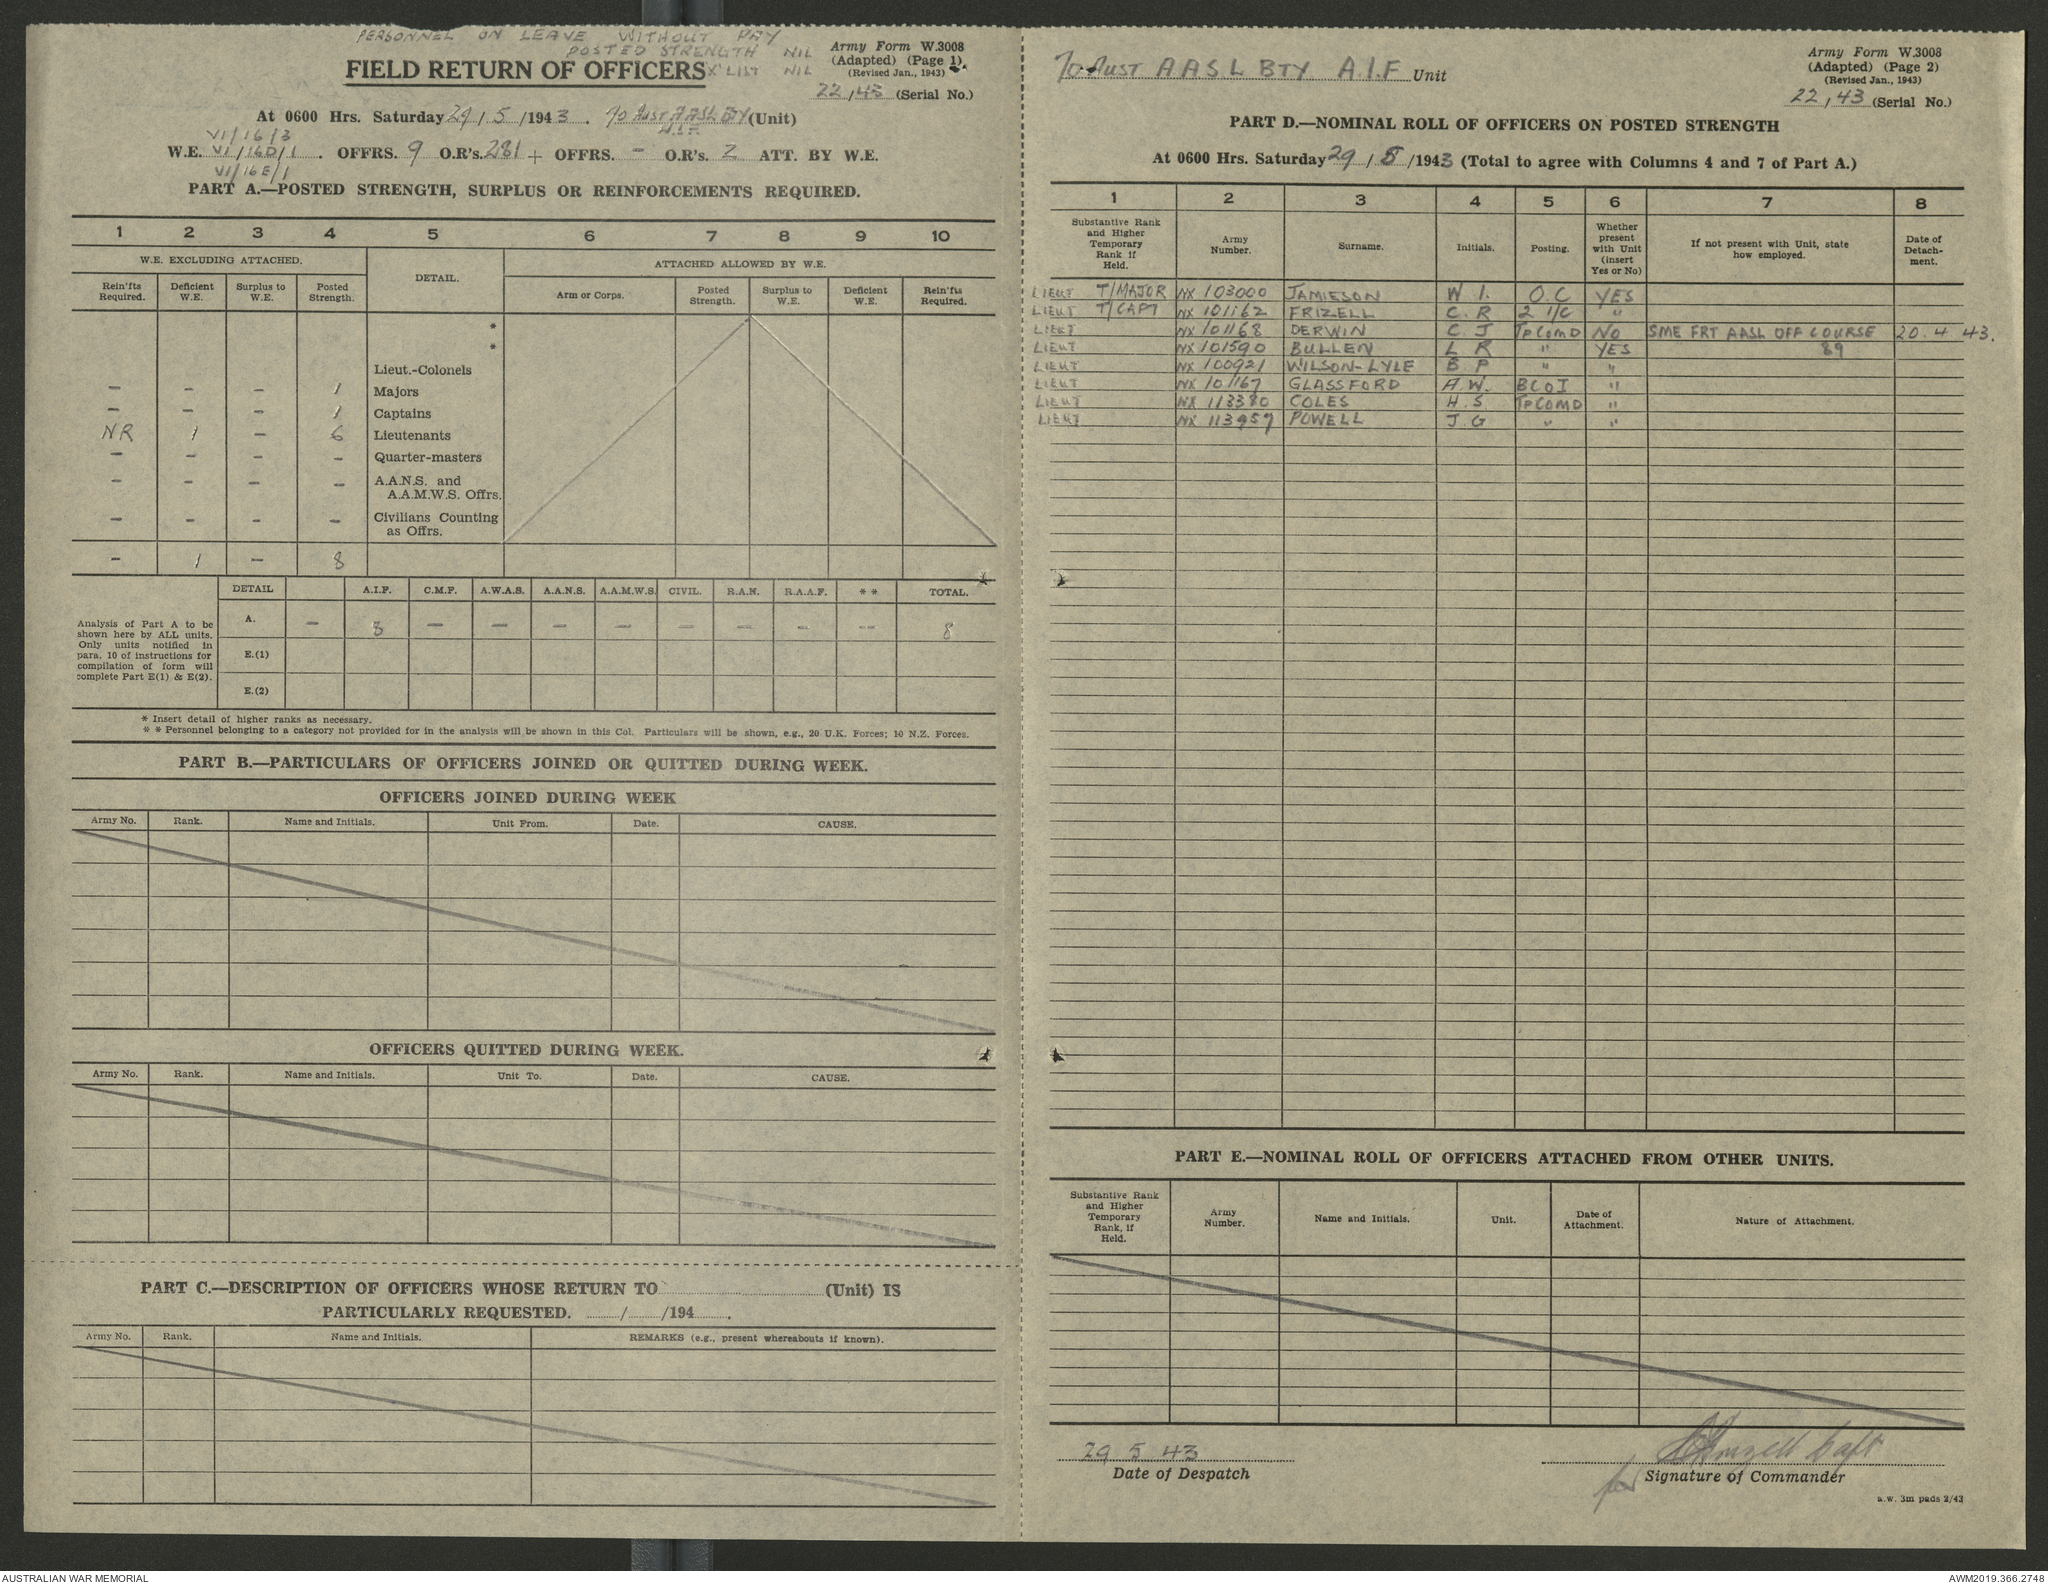 PERSONNEL ON LEAVE WITHOUT PAY
POSTED STRENGTH NIL
X LIST NIL
FIELD RETURN OF OFFICERS
Army Form W.3008
(Adapted) (Page 1)
(Revised Jan., 1943)
22,43 (Serial No.)
At 0600 Hrs. Saturday 29/5/1943. 70 AUST AASL BTY (Unit)
A.I.F.
VI/16/3
W.E. VI/16D/1. OFFRS. 9 O.R's. 281 + OFFRS. - O.R's. 2 ATT. BY W.E.
VI/16E/1
PART A.—POSTED STRENGTH, SURPLUS OR REINFORCEMENTS REQUIRED.
1 2 3 4 5 6 7 8 9 10
W.E. EXCLUDING ATTACHED. DETAIL. ATTACHED ALLOWED BY W.E.
Rein'fts Required. Deficient W.E. Surplus to W.E. Posted Strength. Arm or Corps. Posted Strength. Surplus to W.E. Deficient W.E. Rein'fts Required.
*
*
Lieut.-Colonels
- - - 1 Majors
- - - 1 Captains
NR 1 - 6 Lieutenants
- - - - Quarter-masters
- - - - A.A.N.S. and A.A.M.W.S. Offrs.
- - - - Civilians Counting as Offrs.
- 1 - 8
DETAIL A.I.F. C.M.F. A.W.A.S. A.A.N.S. A.A.M.W.S. CIVIL. R.A.N. R.A.A.F. ** TOTAL.
Analysis of Part A to be shown here by ALL units. Only units notified in para. 10 of instructions for compilation of form will complete Part E(1) & E(2).
A. - 8 - - - - - - - -- 8
E.(1)
E.(2)
* Insert detail of higher ranks as necessary.
* * Personnel belonging to a category not provided for in the analysis will be shown in this Col. Particulars will be shown, e.g., 20 U.K. Forces; 10 N.Z. Forces.
PART B.—PARTICULARS OF OFFICERS JOINED OR QUITTED DURING WEEK.
OFFICERS JOINED DURING WEEK
Army No. Rank. Name and Initials. Unit From. Date. CAUSE.
OFFICERS QUITTED DURING WEEK.
Army No. Rank. Name and Initials. Unit To. Date. CAUSE.
PART C.—DESCRIPTION OF OFFICERS WHOSE RETURN TO (Unit) IS
PARTICULARLY REQUESTED. / /194 .
Army No. Rank. Name and Initials. REMARKS (e.g., present whereabouts if known).
70 AUST AASL BTY A.I.F Unit
Army Form W.3008
(Adapted) (Page 2)
(Revised Jan., 1943)
22,43 (Serial No.)
PART D.—NOMINAL ROLL OF OFFICERS ON POSTED STRENGTH
At 0600 Hrs. Saturday 29/5/1943 (Total to agree with Columns 4 and 7 of Part A.)
1 2 3 4 5 6 7 8
Substantive Rank and Higher Temporary Rank if Held. Army Number. Surname. Initials. Posting. Whether present with Unit (insert Yes or No) If not present with Unit, state how employed. Date of Detachment.
LIEUT T/MAJOR NX 103000 JAMIESON W I. O.C YES
LIEUT T/CAPT NX 101162 FRIZELL C. R 2 I/C "
LIEUT NX 101168 DERWIN C. J TP COMD NO SME FRT AASL OFF COURSE 20. 4 43.
LIEUT NX 101590 BULLEN L R " YES 89
LIEUT NX 100921 WILSON-LYLE B P " "
LIEUT NX 101167 GLASSFORD A.W. BCOI "
LIEUT NX 113380 COLES H.S TP COMD "
LIEUT NX 113957 POWELL J.G " "
PART E.—NOMINAL ROLL OF OFFICERS ATTACHED FROM OTHER UNITS.
Substantive Rank and Higher Temporary Rank, if Held. Army Number. Name and Initials. Unit. Date of Attachment. Nature of Attachment.
29 5 43
Date of Despatch
Capt
for Signature of Commander
a.w. 3m pads 2/43
AUSTRALIAN WAR MEMORIAL
AWM2019.366.2748